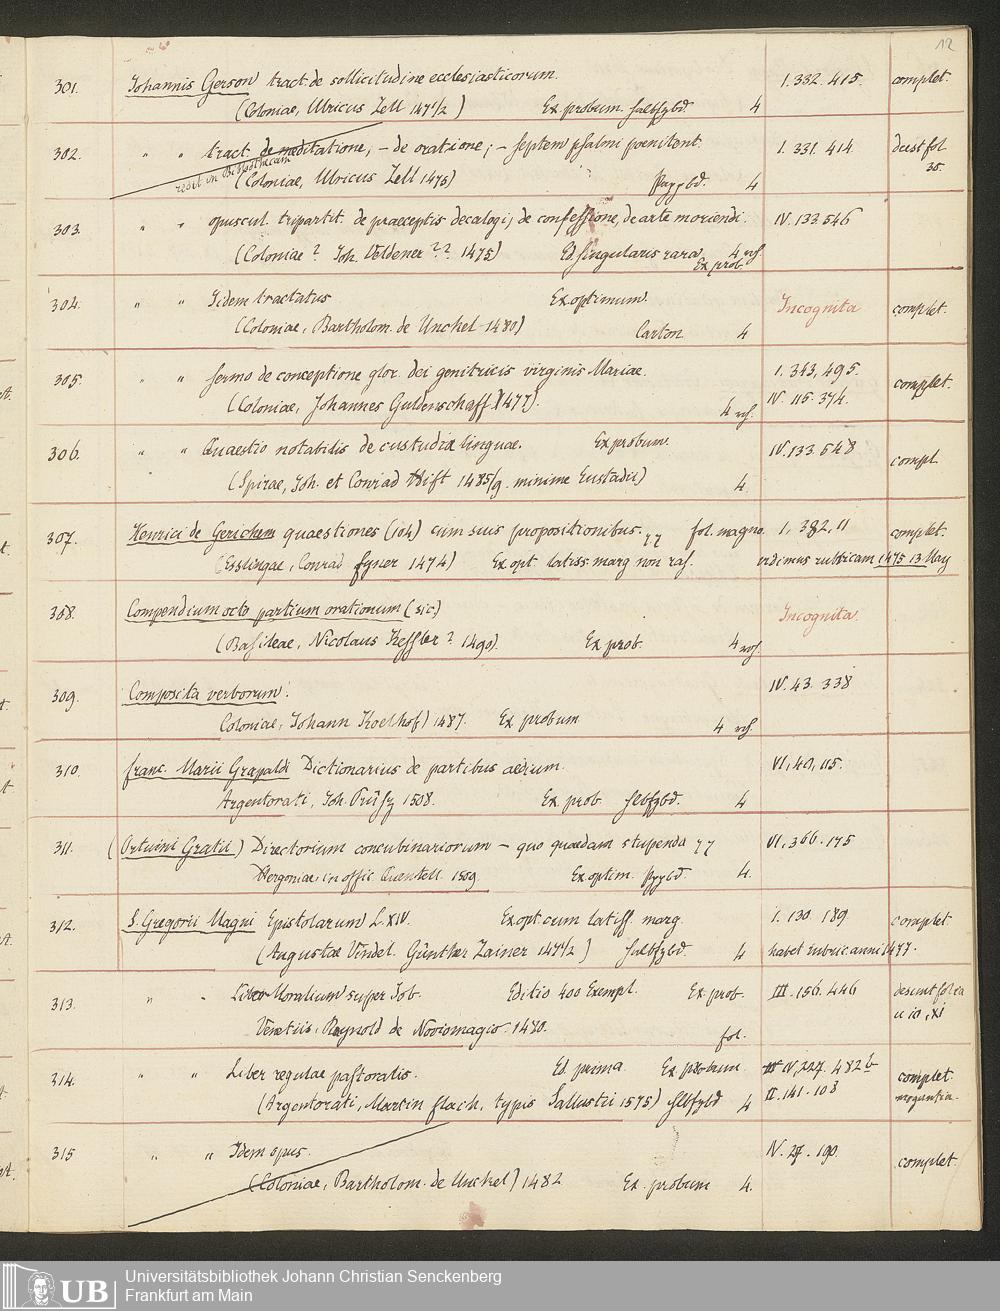 12
301. Johannis Gerson tract. de sollicitudine ecclesiasticorum. I. 332. 415. complet.
(Coloniae, Ulricus Zell 1471/2) Ex probum. Halbfzbd. 4
302. " " tract. de meditatione, - de oratione; - septem psalmi poenitent. I. 331. 414 deest fol
redit in Bibliothecam (Coloniae, Ulricus Zell 1475) Pappbd. 4 30.
303. " " opuscul. tripartit. de praeceptis decalogi, de confessione, de arte moriendi. IV. 133. 546
(Coloniae? Joh. Veldener?? 1475) Ed. singularis rara 4
Ex prob.
304. " " Iidem tractatus Ex optimum. Incognita complet.
(Coloniae, Bartholom. de Unckel 1480) Carton 4
305. " " sermo de conceptione glor. dei genitricis virginis Mariae. I. 343, 495. complet.
(Coloniae, Johannes Guldenschaff 1477). 4 IV. 115. 374.
306. " " Quaestio notabilis de custudia linguae. Ex probum. IV. 133. 548 compl.
(Spirae, Joh. et Conrad Hift 1485/9. minime Eustadii) 4.
307. Henrici de Gorichem quaestiones (104) cum suis propositionibus. fol. magno. I, 382, 11 complet.
(Esslingae, Conrad Fyner 1474) Ex opt. latiss. marg non ras. vidimus rubricam 1475 13 May
308. Compendium octo partium orationum (sic) Incognita.
(Basileae, Nicolaus Kessler? 1490). Ex prob. 4
309. Composita verborum. IV. 43. 338
Coloniae, Johann Koelhof) 1487. Ex probum 4
310. Franc. Marii Grapaldi Dictionarius de partibus aedium. VI, 40, 115.
Argentorati, Joh. Prüsz 1508. Ex prob. Hlbfzbd. 4
311. (Ortuini Gratii) Directorium concubinariorum - quo quaedam stupenda VI. 366. 175
in offic. Quentell. 1509. Ex optim. Pppbd. 4.
312. S. Gregorii Magni Epistolarum L. XIV. Ex opt. cum latiss. marg. I. 130. 189. complet
(Augustae Vindel. Günther Zainer 1471/2) Halbfzbd. 4 habet rubric. anni 1477.
313. " " Liber Moralium super Job. Editio 400 Exempl. Ex prob. III. 156. 446 desunt folia
Venetiis, Raynold de Novomagio. 1480. fol. u 10, XI
314. " " Liber regulae pastoralis. Ed. prima. Ex probum IV, 227. 482b complet.
(Argentorati, Martin Flach, typis Sallustii 1575) Hlbfzbd 4 II. 141. 108 moguntia.
315 " " Idem opus. IV. 27. 190. complet.
(Coloniae, Bartholom. de Unckel) 1482 Ex probum 4.
UB Universitätsbibliothek Johann Christian Senckenberg
Frankfurt am Main